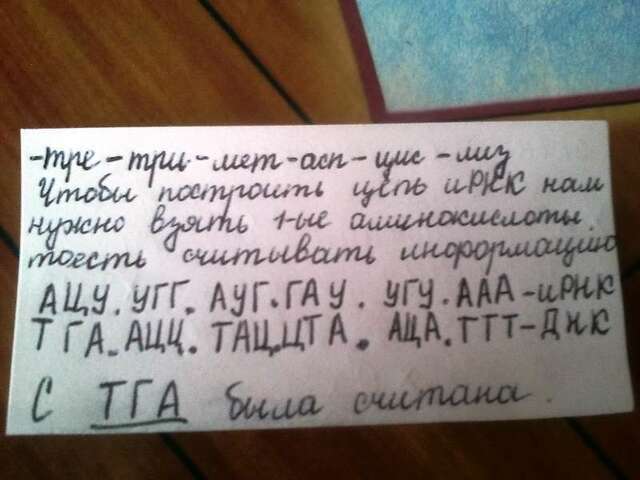 -тре-три-мет-асп-цис-лиз
Чтобы построить цепь иРНК нам
нужно взять 1-ые аминокислоты.
тоесть считывать информацию
АЦУ. УГГ. АУГ. ГАУ. УГУ. ААА-иРНК
ТГА. АЦЦ. ТАЦ. ЦТА. АЦА. ТТТ-ДНК
С ТГА была считана.